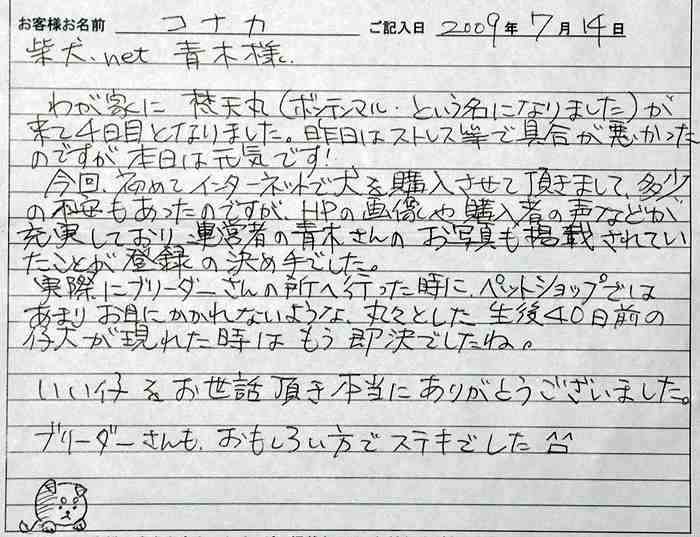 お客様お名前 コナカ ご記入日 2009年 7月 14日
柴犬.net 青木様.
わが家に 梵天丸(ボンテンマル・という名になりました)が
来て4日目となりました。昨日はストレス等で具合が悪かった
のですが本日は元気です!
今回、初めてインターネットで犬を購入させて頂きまして、多少
の不安もあったのですが、HPの画像や購入者の声などが
充実しており 運営者の青木さんの お写真も掲載されてい
たことが登録の決め手でした。
実際にブリーダーさんの所へ行った時に、ペットショップでは
あまりお目にかかれないような、丸々とした 生後40日前の
仔犬が現れた時は もう 即決でしたね。
いい仔をお世話頂き本当にありがとうございました。
ブリーダーさんも、おもしろい方でステキでした ^^